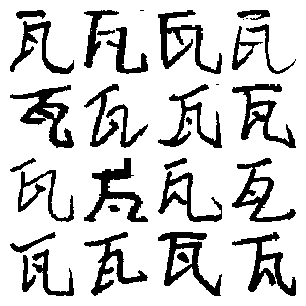 瓦瓦瓦瓦
瓦瓦瓦瓦
瓦瓦瓦瓦
瓦瓦瓦瓦